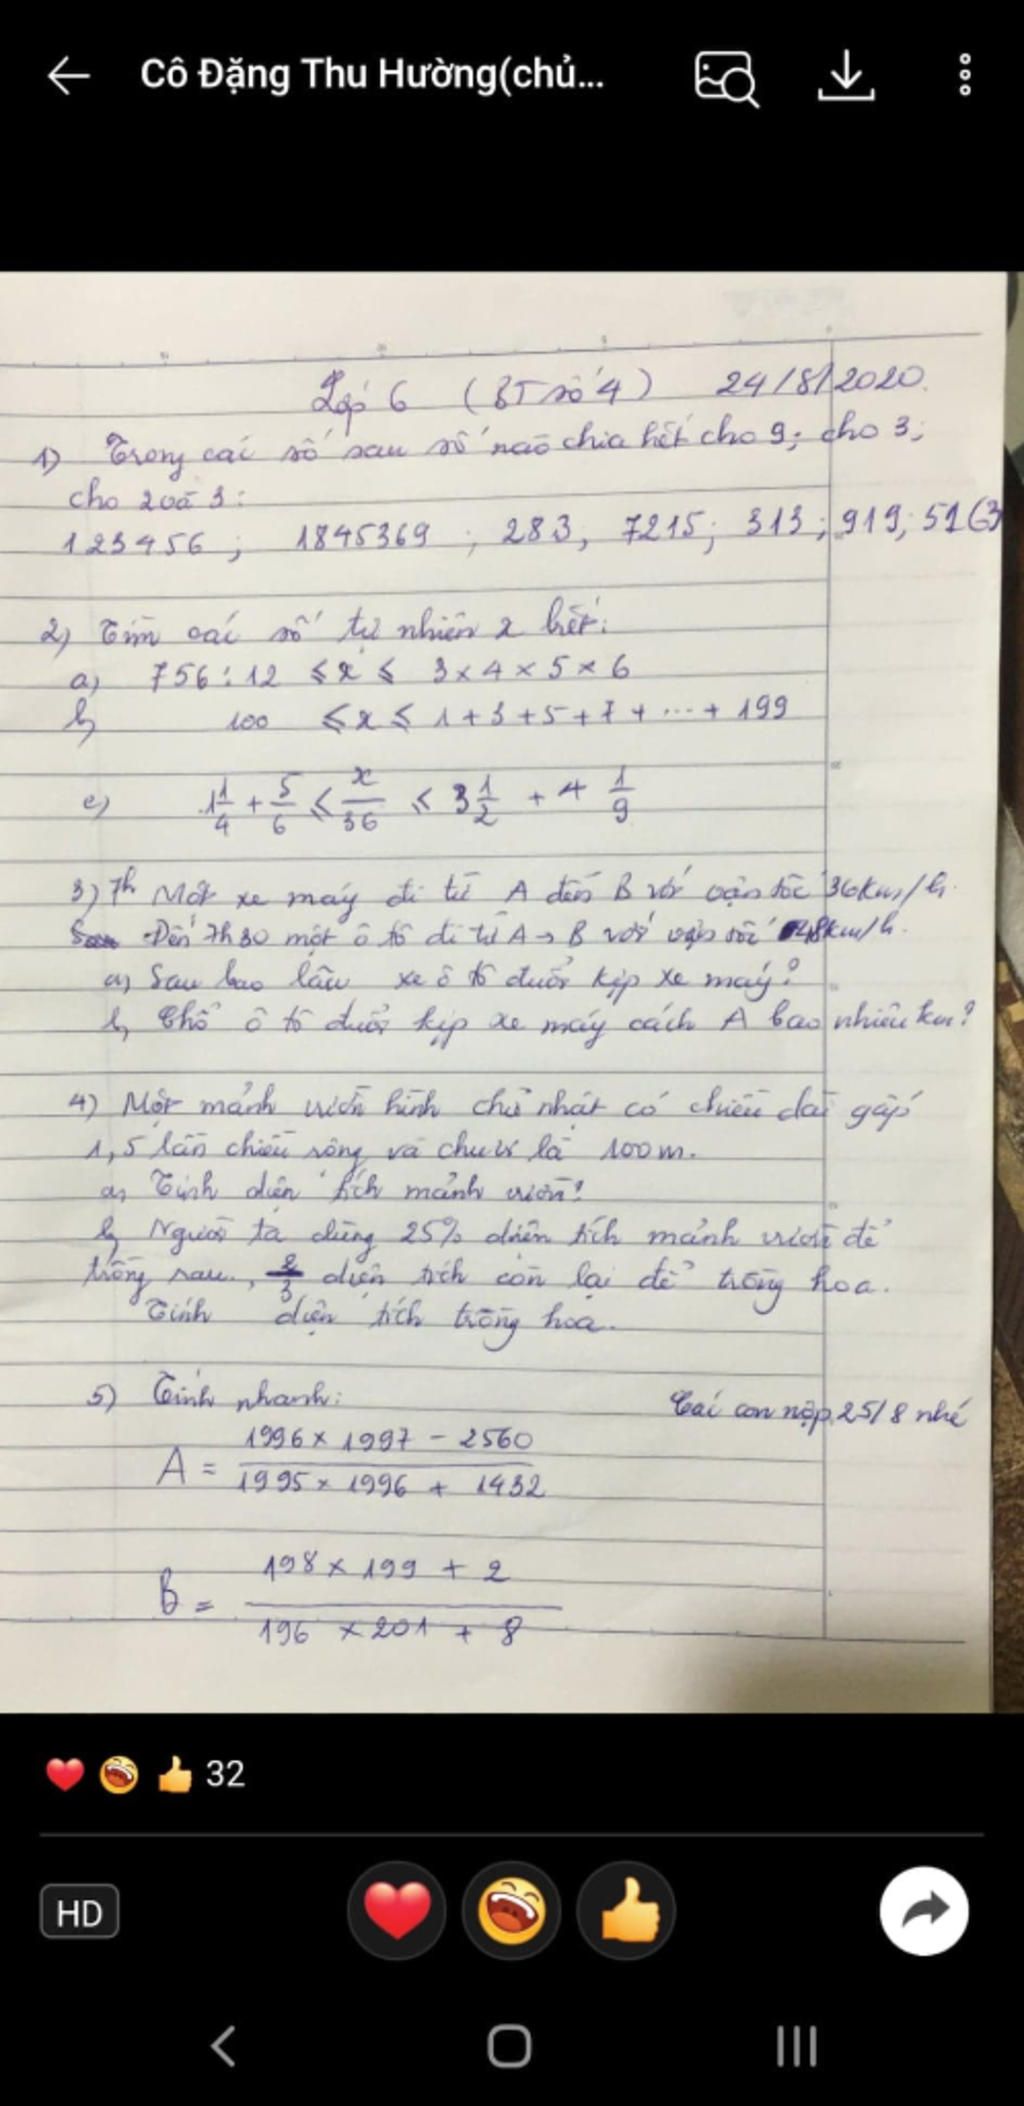 Cô Đặng Thu Hường(chủ...
Lớp 6 (BT số 4) 24/8/2020.
1) Trong các số sau số nào chia hết cho 9; cho 3;
cho 2 và 3:
123456; 1845369; 283; 7215; 313; 919; 5163
2) Tìm các số tự nhiên x biết:
a) 756 : 12 ≤ x ≤ 3 × 4 × 5 × 6
b) 100 ≤ x ≤ 1 + 3 + 5 + 7 + ... + 199
c) 1 1/4 + 5/6 ≤ x/36 ≤ 3 1/2 + 4 1/9
3) 7h Một xe máy đi từ A đến B với vận tốc 36km/h.
Đến 7h30 một ô tô đi từ A → B với vận tốc 48km/h.
a) Sau bao lâu xe ô tô đuổi kịp xe máy?
b) Chỗ ô tô đuổi kịp xe máy cách A bao nhiêu km?
4) Một mảnh vườn hình chữ nhật có chiều dài gấp
1,5 lần chiều rộng và chu vi là 100m.
a) Tính diện tích mảnh vườn?
b) Người ta dùng 25% diện tích mảnh vườn để
trồng rau, 2/3 diện tích còn lại để trồng hoa.
Tính diện tích trồng hoa.
5) Tính nhanh: Các con nộp 25/8 nhé
A = (1996 × 1997 - 2560)/(1995 × 1996 + 1432)
B = (198 × 199 + 2)/(196 × 201 + 8)
32
HD